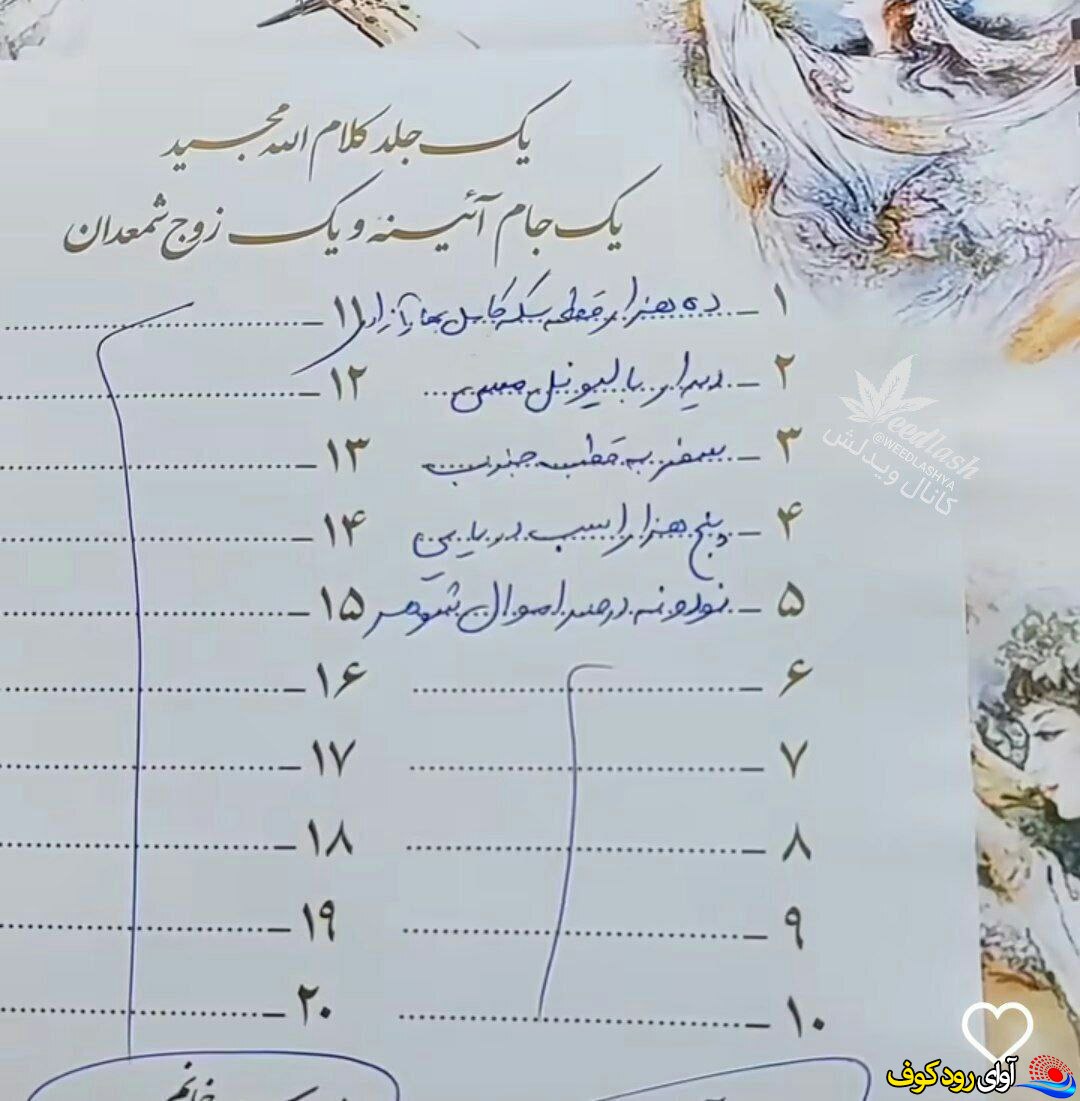 یک جلد کلام الله مجید
یک جام آئینه و یک زوج شمعدان
۱ – ده هزار قطعه سکه کامل بهار آزادی
۲ – دیدار با لیونل مسی
۳ – سفر به قطب جنوب
۴ – پنج هزار اسب دریایی
۵ – نود و نه درصد اموال شوهر
۶ –
۷ –
۸ –
۹ –
۱۰ –
۱۱ –
۱۲ –
۱۳ –
۱۴ –
۱۵ –
۱۶ –
۱۷ –
۱۸ –
۱۹ –
۲۰ –
خانم
Weedlash
@WEEDLASHYA
کانال ویدلش
آوای رود کوف